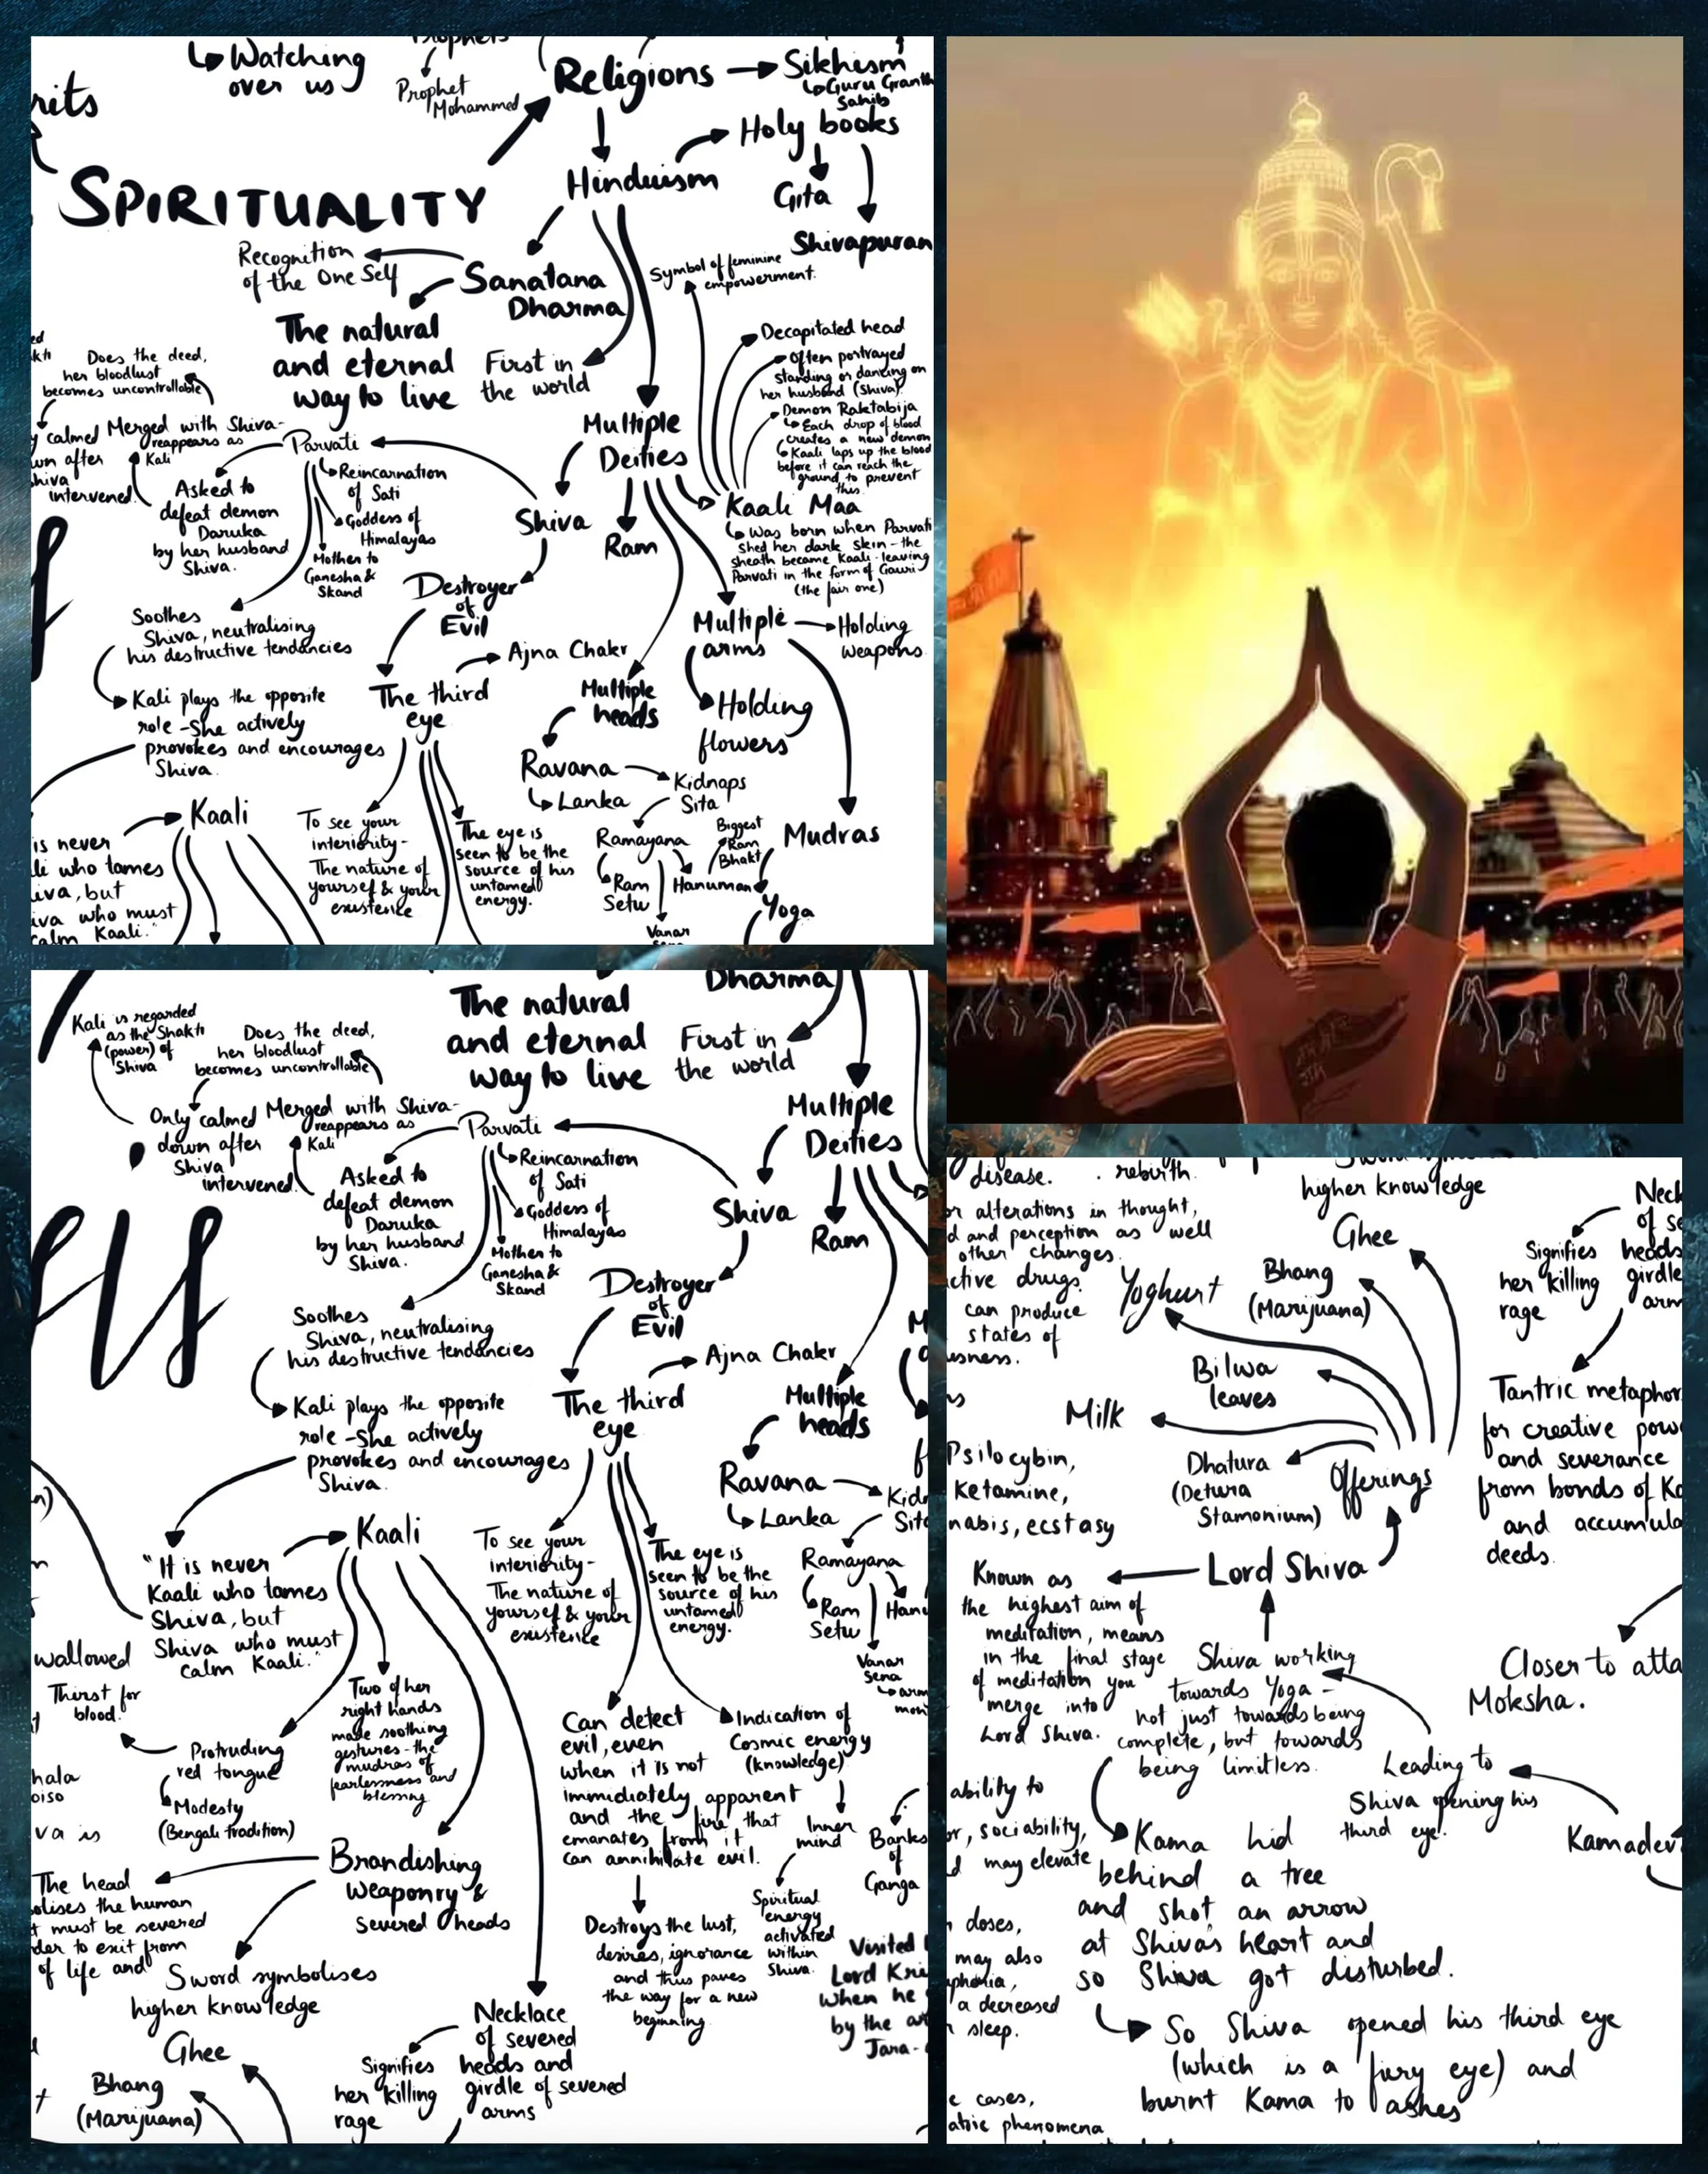 Watching
over us
Prophets
Prophet
Mohammed
Religions
Sikhism
Guru Granth
Sahib
Holy books
Gita
Shivapuran
SPIRITUALITY
Hinduism
Recognition
of the One Self
Sanatana
Dharma
The natural
and eternal
way to live
First in
the world
Symbol of feminine
empowerment.
Decapitated head
Often portrayed
standing or dancing on
her husband (Shiva).
Demon Raktabija
Each drop of blood
creates a new demon
Kaali laps up the blood
before it can reach the
ground to prevent
this.
Kaali Maa
Was born when Parvati
shed her dark skin - the
sheath became Kaali - leaving
Parvati in the form of Gauri
(the fair one)
Multiple
Deities
Does the deed,
her bloodlust
becomes uncontrollable
calmed
after
intervened.
Merged with Shiva-
reappears as
Kali
Parvati
Asked to
defeat demon
Daruka
by her husband
Shiva.
Reincarnation
of Sati
Goddess of
Himalayas
Mother to
Ganesha &
Skand
Shiva
Ram
Destroyer
of
Evil
Soothes
Shiva, neutralising
his destructive tendencies
Kali plays the opposite
role - She actively
provokes and encourages
Shiva.
Ajna Chakr
The third
eye
Multiple
heads
Multiple
arms
Holding
weapons.
Holding
flowers
Mudras
Ravana
Lanka
Kidnaps
Sita
Ramayana
Ram
Setu
Hanuman
Biggest
Ram
Bhakt
Vanar
Yoga
Kaali
is never
who tames
but
who must
calm Kaali."
To see your
interiority-
The nature of
yoursef & your
existence
The eye is
seen to be the
source of his
untamed
energy.
Dharma
The natural
and eternal
way to live
First in
the world
Kali is regarded
as the Shakti
(power) of
Shiva
Does the deed,
her bloodlust
becomes uncontrollable
Only calmed
down after
Shiva
intervened.
Merged with Shiva-
reappears as
Kali
Parvati
Asked to
defeat demon
Daruka
by her husband
Shiva.
Reincarnation
of Sati
Goddess of
Himalayas
Mother to
Ganesha &
Skand
Multiple
Deities
Shiva
Ram
Destroyer
of
Evil
Soothes
Shiva, neutralising
his destructive tendencies
Kali plays the opposite
role - She actively
provokes and encourages
Shiva.
Ajna Chakr
The third
eye
Multiple
heads
Ravana
Lanka
Ramayana
Ram
Setu
Vanar
Sena
Kaali
"It is never
Kaali who tames
Shiva, but
Shiva who must
calm Kaali."
To see your
interiority-
The nature of
yoursef & your
existence
The eye is
seen to be the
source of his
untamed
energy.
Thirst for
blood.
Protruding
red tongue
Modesty
(Bengali tradition)
Two of her
right hands
made soothing
gestures - the
mudras of
fearlessness and
blessing
Can detect
evil, even
when it is not
immediately apparent
and the fire that
emanates from it
can annihilate evil.
Indication of
Cosmic energy
(knowledge)
Inner
mind
Banks
of
Ganga
Brandishing
Weaponry &
severed heads
The head
the human
must be severed
to exit from
of life and
Sword symbolises
higher knowledge
Destroys the lust,
desires, ignorance
and thus paves
the way for a new
beginning.
Spiritual
energy
activated
within
Shiva.
Visited
Lord
when he
by the
Jara-
Necklace
of severed
heads and
girdle of severed
arms
Signifies
her killing
rage
Ghee
Bhang
(Marijuana)
disease.
rebirth.
higher knowledge
alterations in thought,
and perception as well
other changes.
drugs.
can produce
states of
Yoghurt
Ghee
Bhang
(Marijuana)
Bilwa
leaves
Milk
Dhatura
(Detura
Stamonium)
Offerings
Signifies
her killing
rage
heads
girdle
Tantric metaphor
for creative
and severance
from bonds of
and
deeds.
Psilocybin,
Ketamine,
ecstasy
Lord Shiva
Known as
the highest aim of
meditation, means
in the final stage
of meditation you
merge into
Lord Shiva.
Shiva working
towards Yoga -
not just towards being
complete, but towards
being limitless.
Closer to
Moksha.
Leading to
Shiva opening his
third eye.
Kamadev
ability to
sociability,
may elevate
Kama hid
behind a tree
and shot an arrow
at Shiva's heart and
so Shiva got disturbed.
doses,
may also
a decreased
sleep.
So Shiva opened his third eye
(which is a fiery eye) and
burnt Kama to ashes
cases,
phenomena